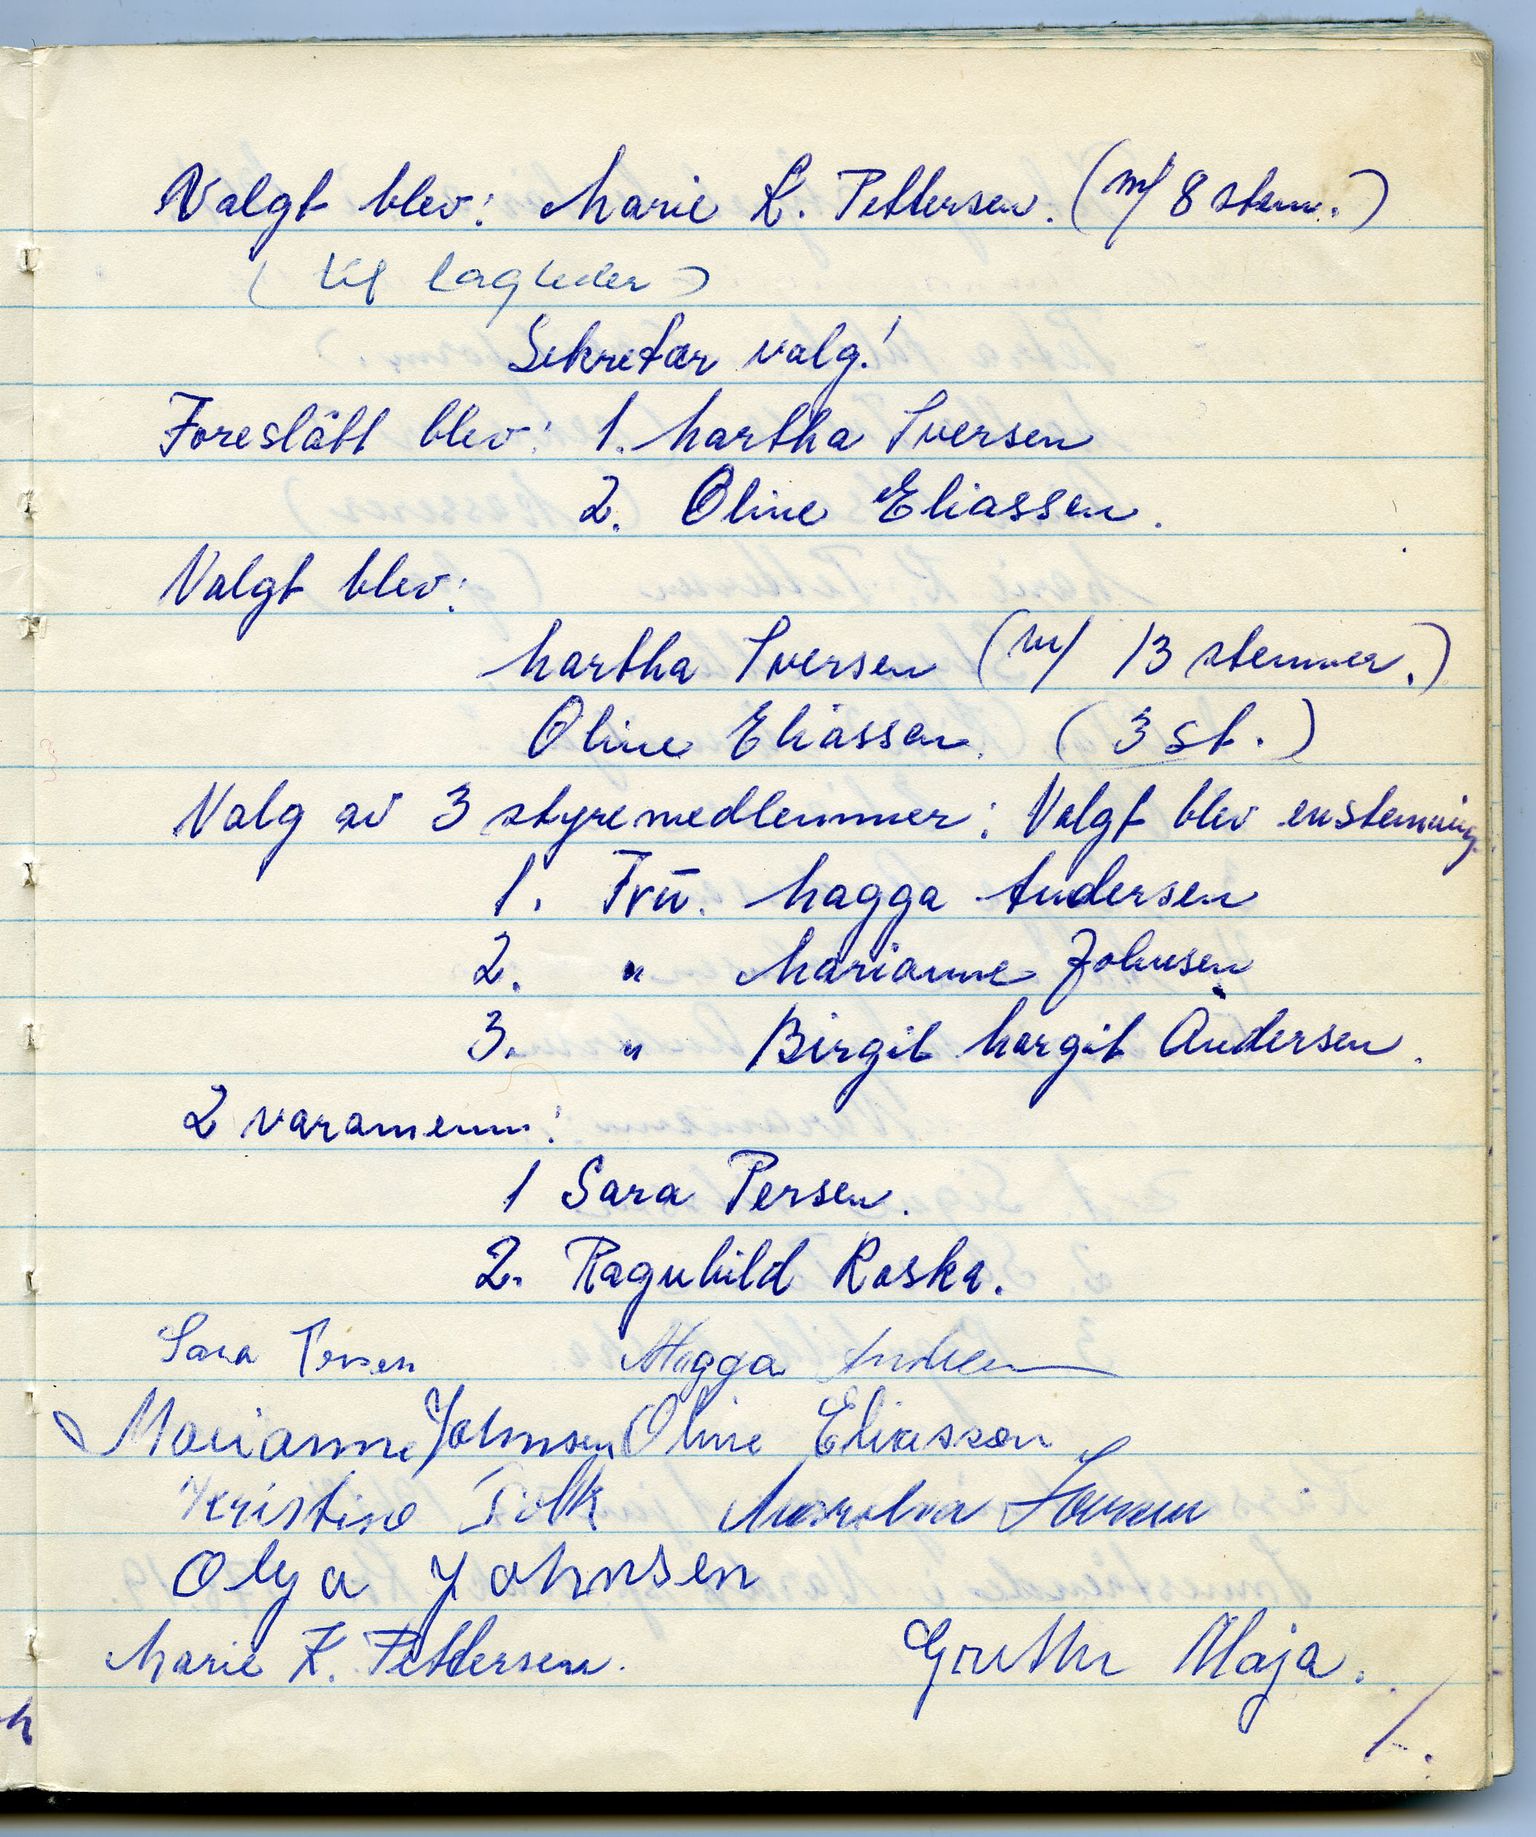 Valgt blev: Marie K. Pettersen. (m/ 8 stem.)
(til lagleder)
Sekretær valg!
Foreslått blev: 1. Martha Iversen
2. Oline Eliassen.
Valgt blev:
Martha Iversen (m/ 13 stemmer.)
Oline Eliassen. (3 st.)
Valg av 3 styremedlemmer: Valgt blev enstemmig.
1. Fru. Magga Andersen
2. " Marianne Johnsen
3. " Birgit Margit Andersen.
2 varamenn:
1 Sara Persen.
2. Ragnhild Roska.
Sara Persen Magga Andersen
Marianne Johnsen Oline Eliassen
Kristine
Olga Johnsen
Marie K. Pettersen. Grethe Maja.